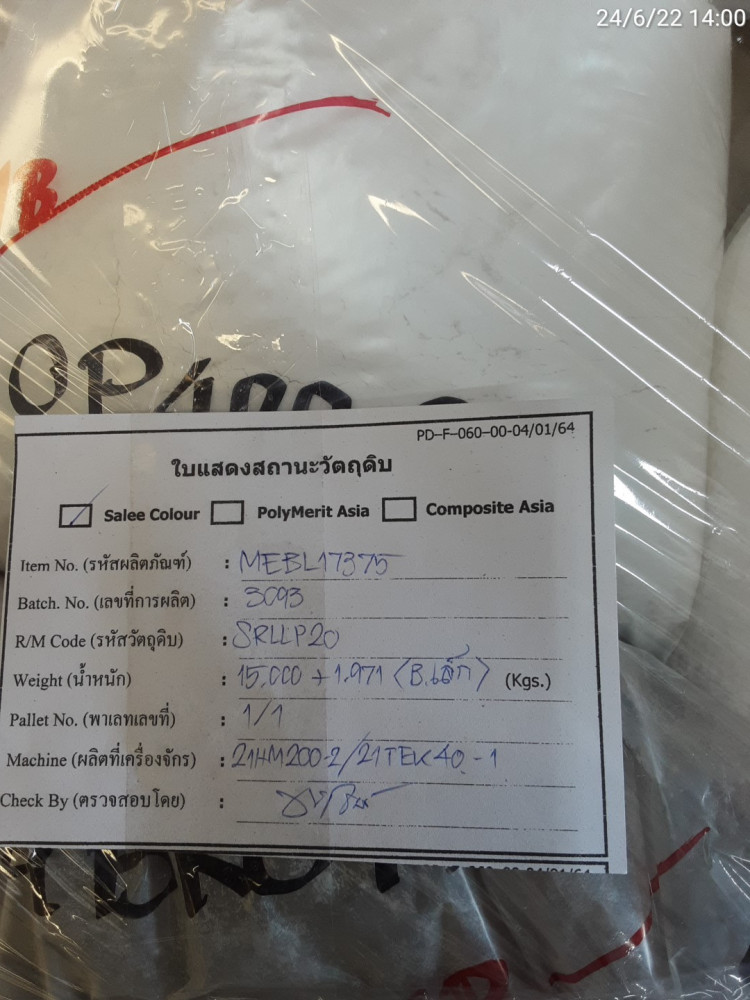 24/6/22 14:00
PD-F-060-00-04/01/64
ใบแสดงสถานะวัตถุดิบ
Salee Colour PolyMerit Asia Composite Asia
Item No. (รหัสผลิตภัณฑ์) : MEBL17375
Batch. No. (เลขที่การผลิต) : 3093
R/M Code (รหัสวัตถุดิบ) : SRLLP20
Weight (น้ำหนัก) : 15.000 + 1.971 (B.เล็ก) (Kgs.)
Pallet No. (พาเลทเลขที่) : 1/1
Machine (ผลิตที่เครื่องจักร) : 21HM200-2/21TEK40-1
Check By (ตรวจสอบโดย) :